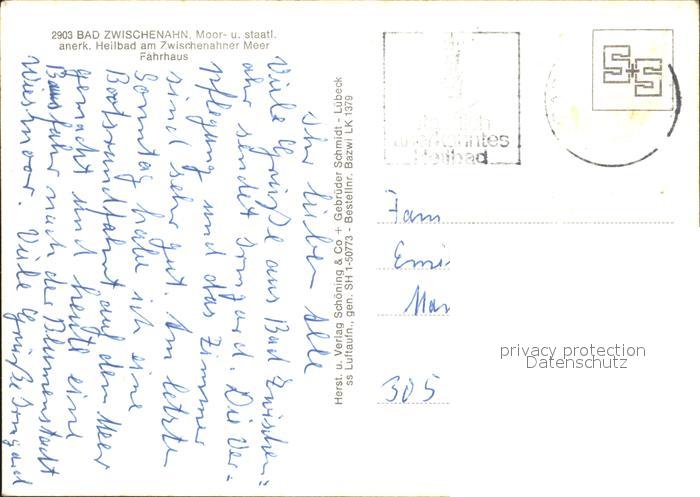 2903 BAD ZWISCHENAHN, Moor- u. staatl.
anerk. Heilbad am Zwischenahner Meer
Fährhaus
Ihr lieben Alle
Viele Grüße aus Bad Zwischen=
ahn sendet Irmgard. Die Ver=
pflegung und das Zimmer
sind sehr gut. Am letzten
Sonntag habe ich eine
Bootsrundfahrt auf dem Meer
gemacht und heute eine
Busfahrt nach der Blumenstadt
Wiesmoor. Viele Grüße Irmgard
Herst. u. Verlag Schöning & Co + Gebrüder Schmidt - Lübeck
ss Luftaufn., gen. SH 1-50773 - Bestellnr. Bazwi LK 1379
anerkanntes
Heilbad
S+S
Fam
Emi
Mar
305
privacy protection
Datenschutz